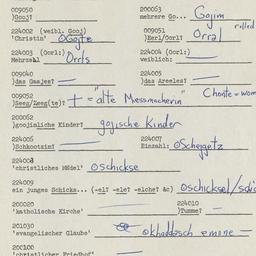 009050
)Gooj?
200063
mehrere Go... Gojim
224002 (weibl. Gooj)
'Christin' oGojte
009051
)Eerl/Oorl? Orral
rolled
224003 (Oorl:)
Mehrzahl Orrls
224004 (Oorl:)
weiblich:
009040
)das Gaajes? —
224005
)das Areeles? —
009052
)Seeg/Zeeg(te)? + = "alte Messmacherin"
200062
)goojinliche Kinder? gojische Kinder
224006
)Schkootsim?
224007
Einzahl: oSchejgetz
224008
'christliches Mädel' oSchickse
224009
ein junges Schicks... (-el? -ele? -elche? &c) oSchicksel/
200020
'katholische Kirche'
224010
)Tumme? —
201030
'evangelischer Glaube' emune —
200100
'christlicher Friedhof' —